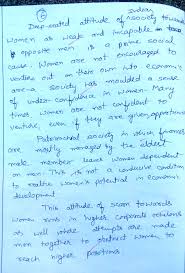 Deep-rooted attitude of society towards
women as weak and incapable
opposite men is a prime societal
cause. Women are not encouraged to
venture out on their own into economic
area - a society has moulded a sense
of under confidence in women. Many
times women are not confident to
venture, even if they are given opportunities
Patriarchal society in which finances
are mostly managed by the eldest
male member leaves women dependent
on men. This is not a conducive condition
to realise women's potential in economic
development.
This attitude of seam towards
women runs in higher corporate echelons
as well where attempts are made
men together to obstruct women to
reach higher positions